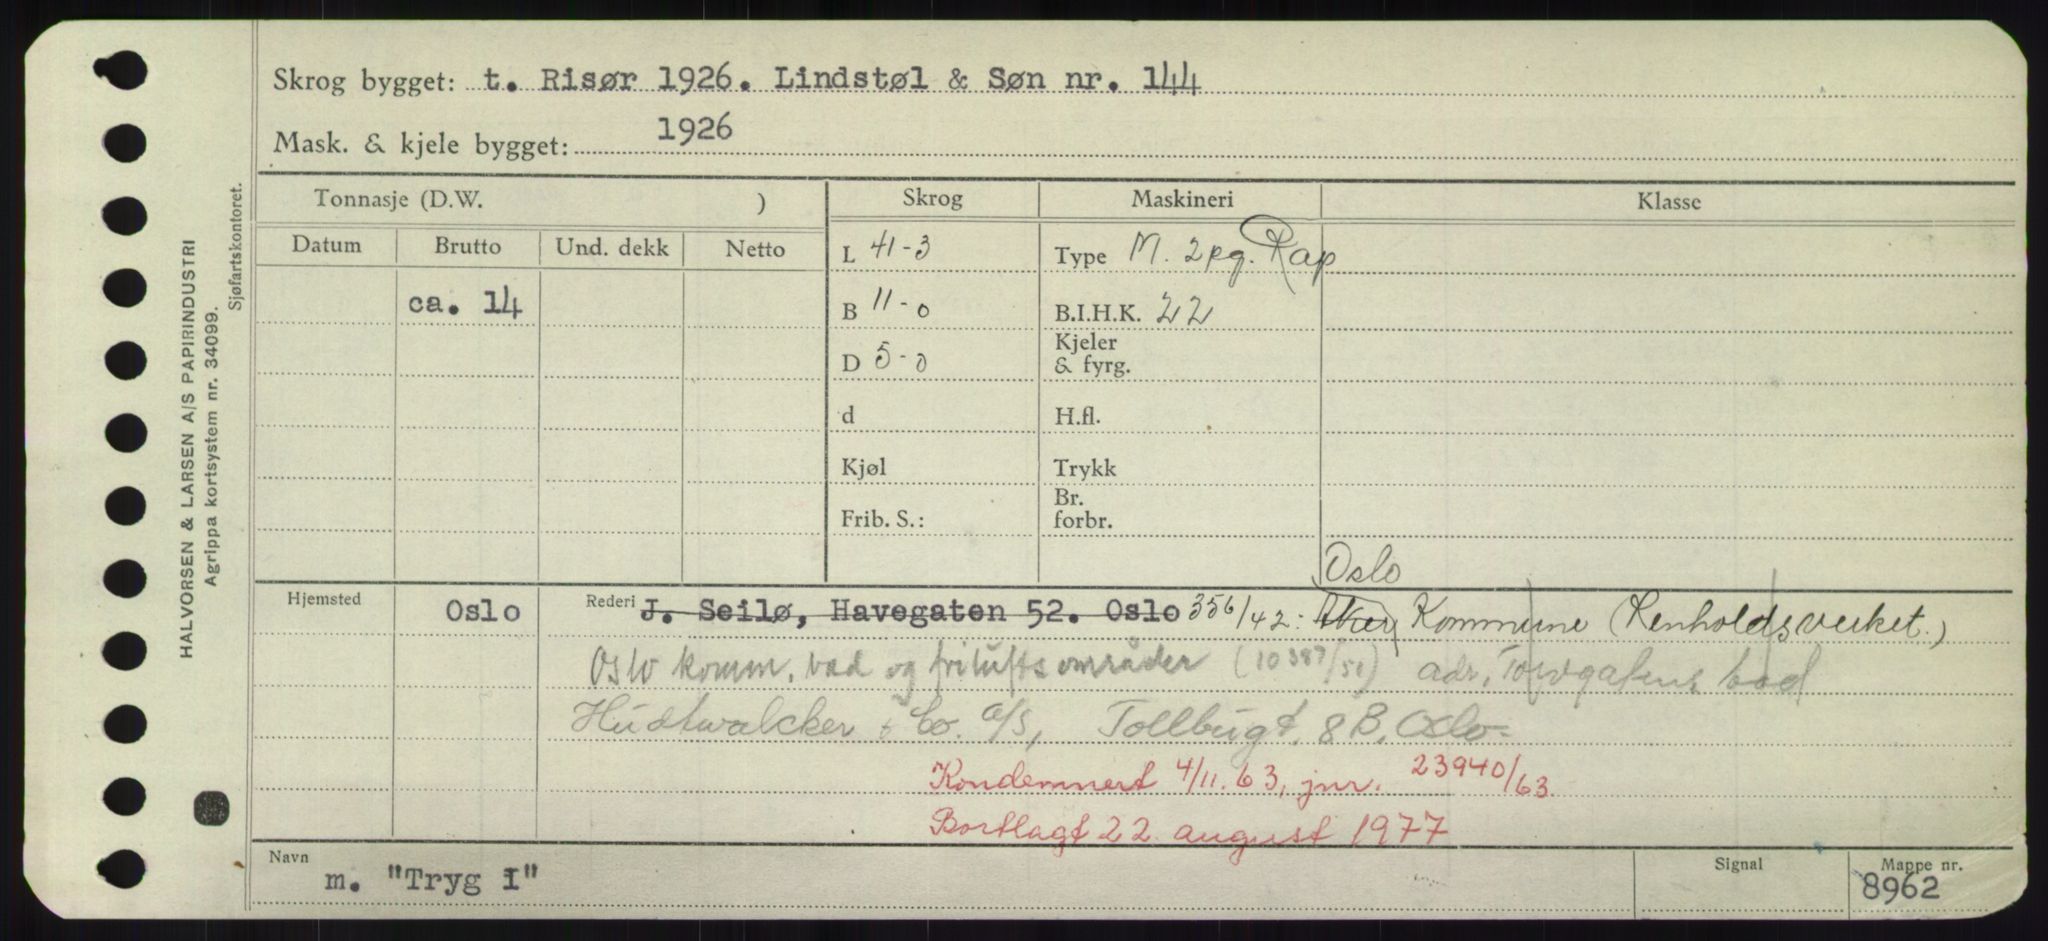 Skrog bygget: t. Risør 1926. Lindstøl & Søn nr. 144
Mask. & kjele bygget: 1926
Tonnasje (D.W. ) Skrog Maskineri Klasse
Datum Brutto Und. dekk Netto
L 41-3 Type M. 2 pg. Rap
ca. 14 B 11-0 B.I.H.K. 22
D 5-0 Kjeler & fyrg.
d H.fl.
Kjøl Trykk
Frib. S.: Br. forbr.
Oslo
Hjemsted Oslo Rederi J. Seilø, Havegaten 52. Oslo 356/42: Aker Kommune (Renholdsverket.)
Oslo komm. bad og friluftsområder (10387/51) adr. Torvgatens bad
Hudtwalcker & Co. A/S, Tollbugt. 8B, Oslo.
Kondemnert 4/11.63, jnr. 23940/63.
Bortlagt 22. august 1977
Navn m. "Tryg I" Signal Mappe nr. 8962
HALVORSEN & LARSEN A/S PAPIRINDUSTRI
Agrippa kortsystem nr. 34099.
Sjøfartskontoret.